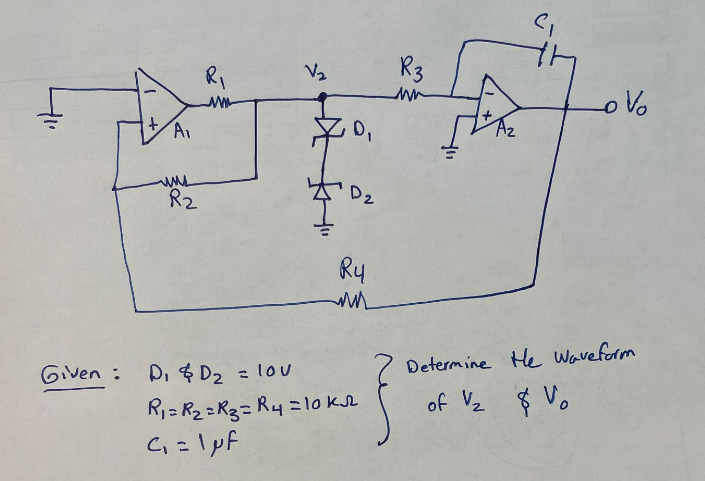 C₁
R₁
V₂
R₃
-
+
A₁
D₁
-
+
A₂
V₀
R₂
D₂
R₄
Given : D₁ & D₂ = 10V
R₁=R₂=R₃=R₄=10 kΩ
C₁ = 1 μF
Determine the waveform
of V₂ & V₀